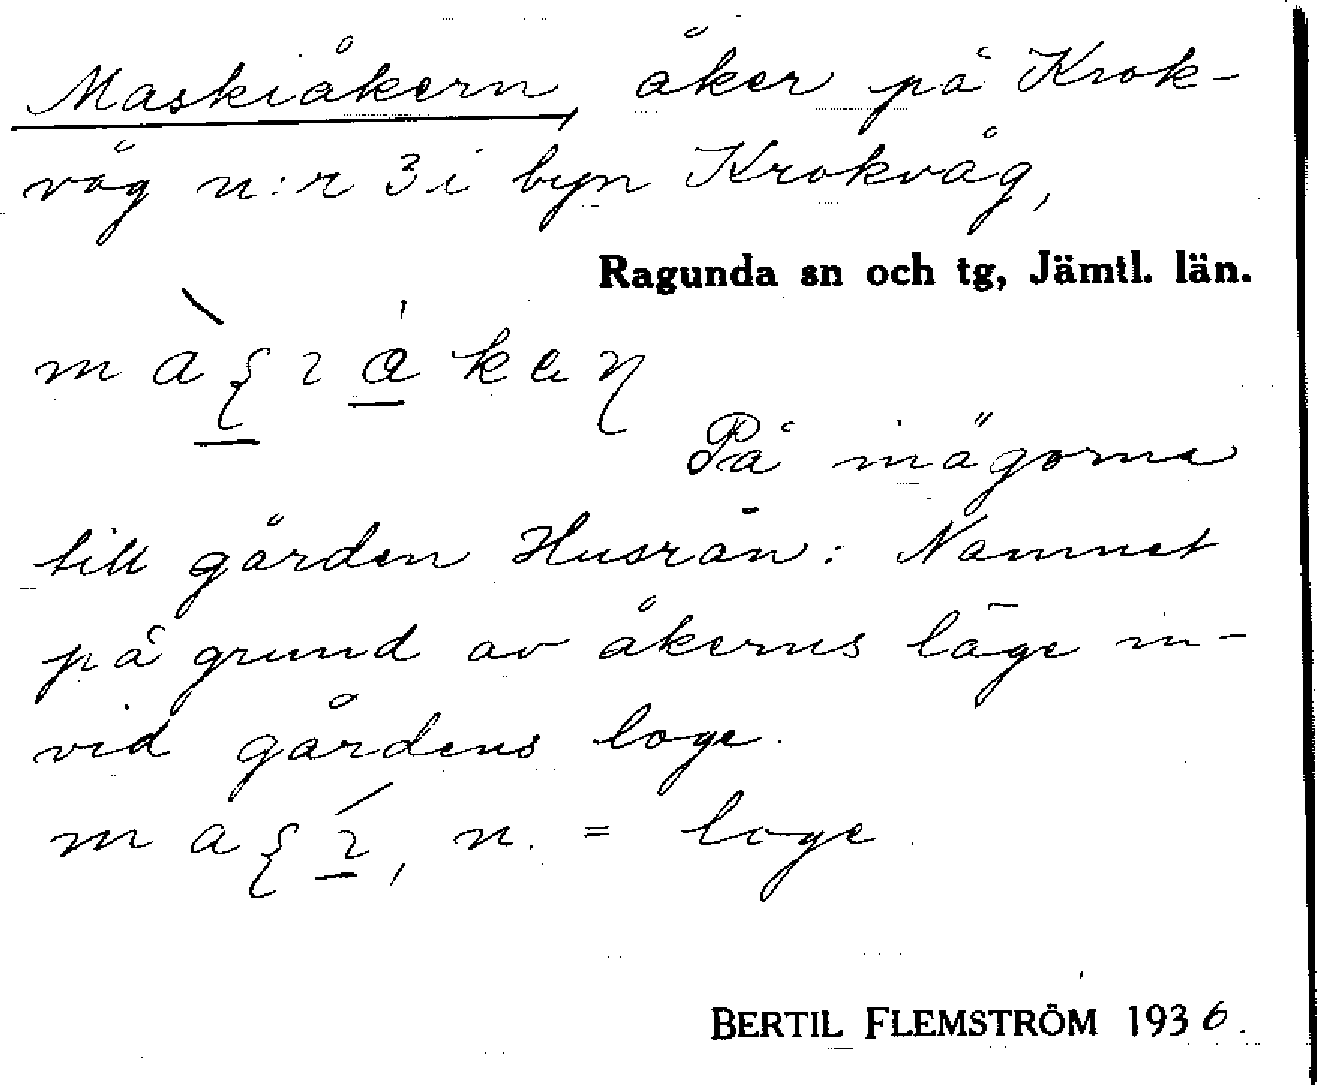 Maskiåkern, åker på Krok-
våg n:r 3 i byn Krokvåg,
Ragunda sn och tg, Jämtl. län.
På inägorna
till gården Husrån: Namnet
på grund av åkerns läge in-
vid gårdens loge.
n. = loge
BERTIL FLEMSTRÖM 1936.